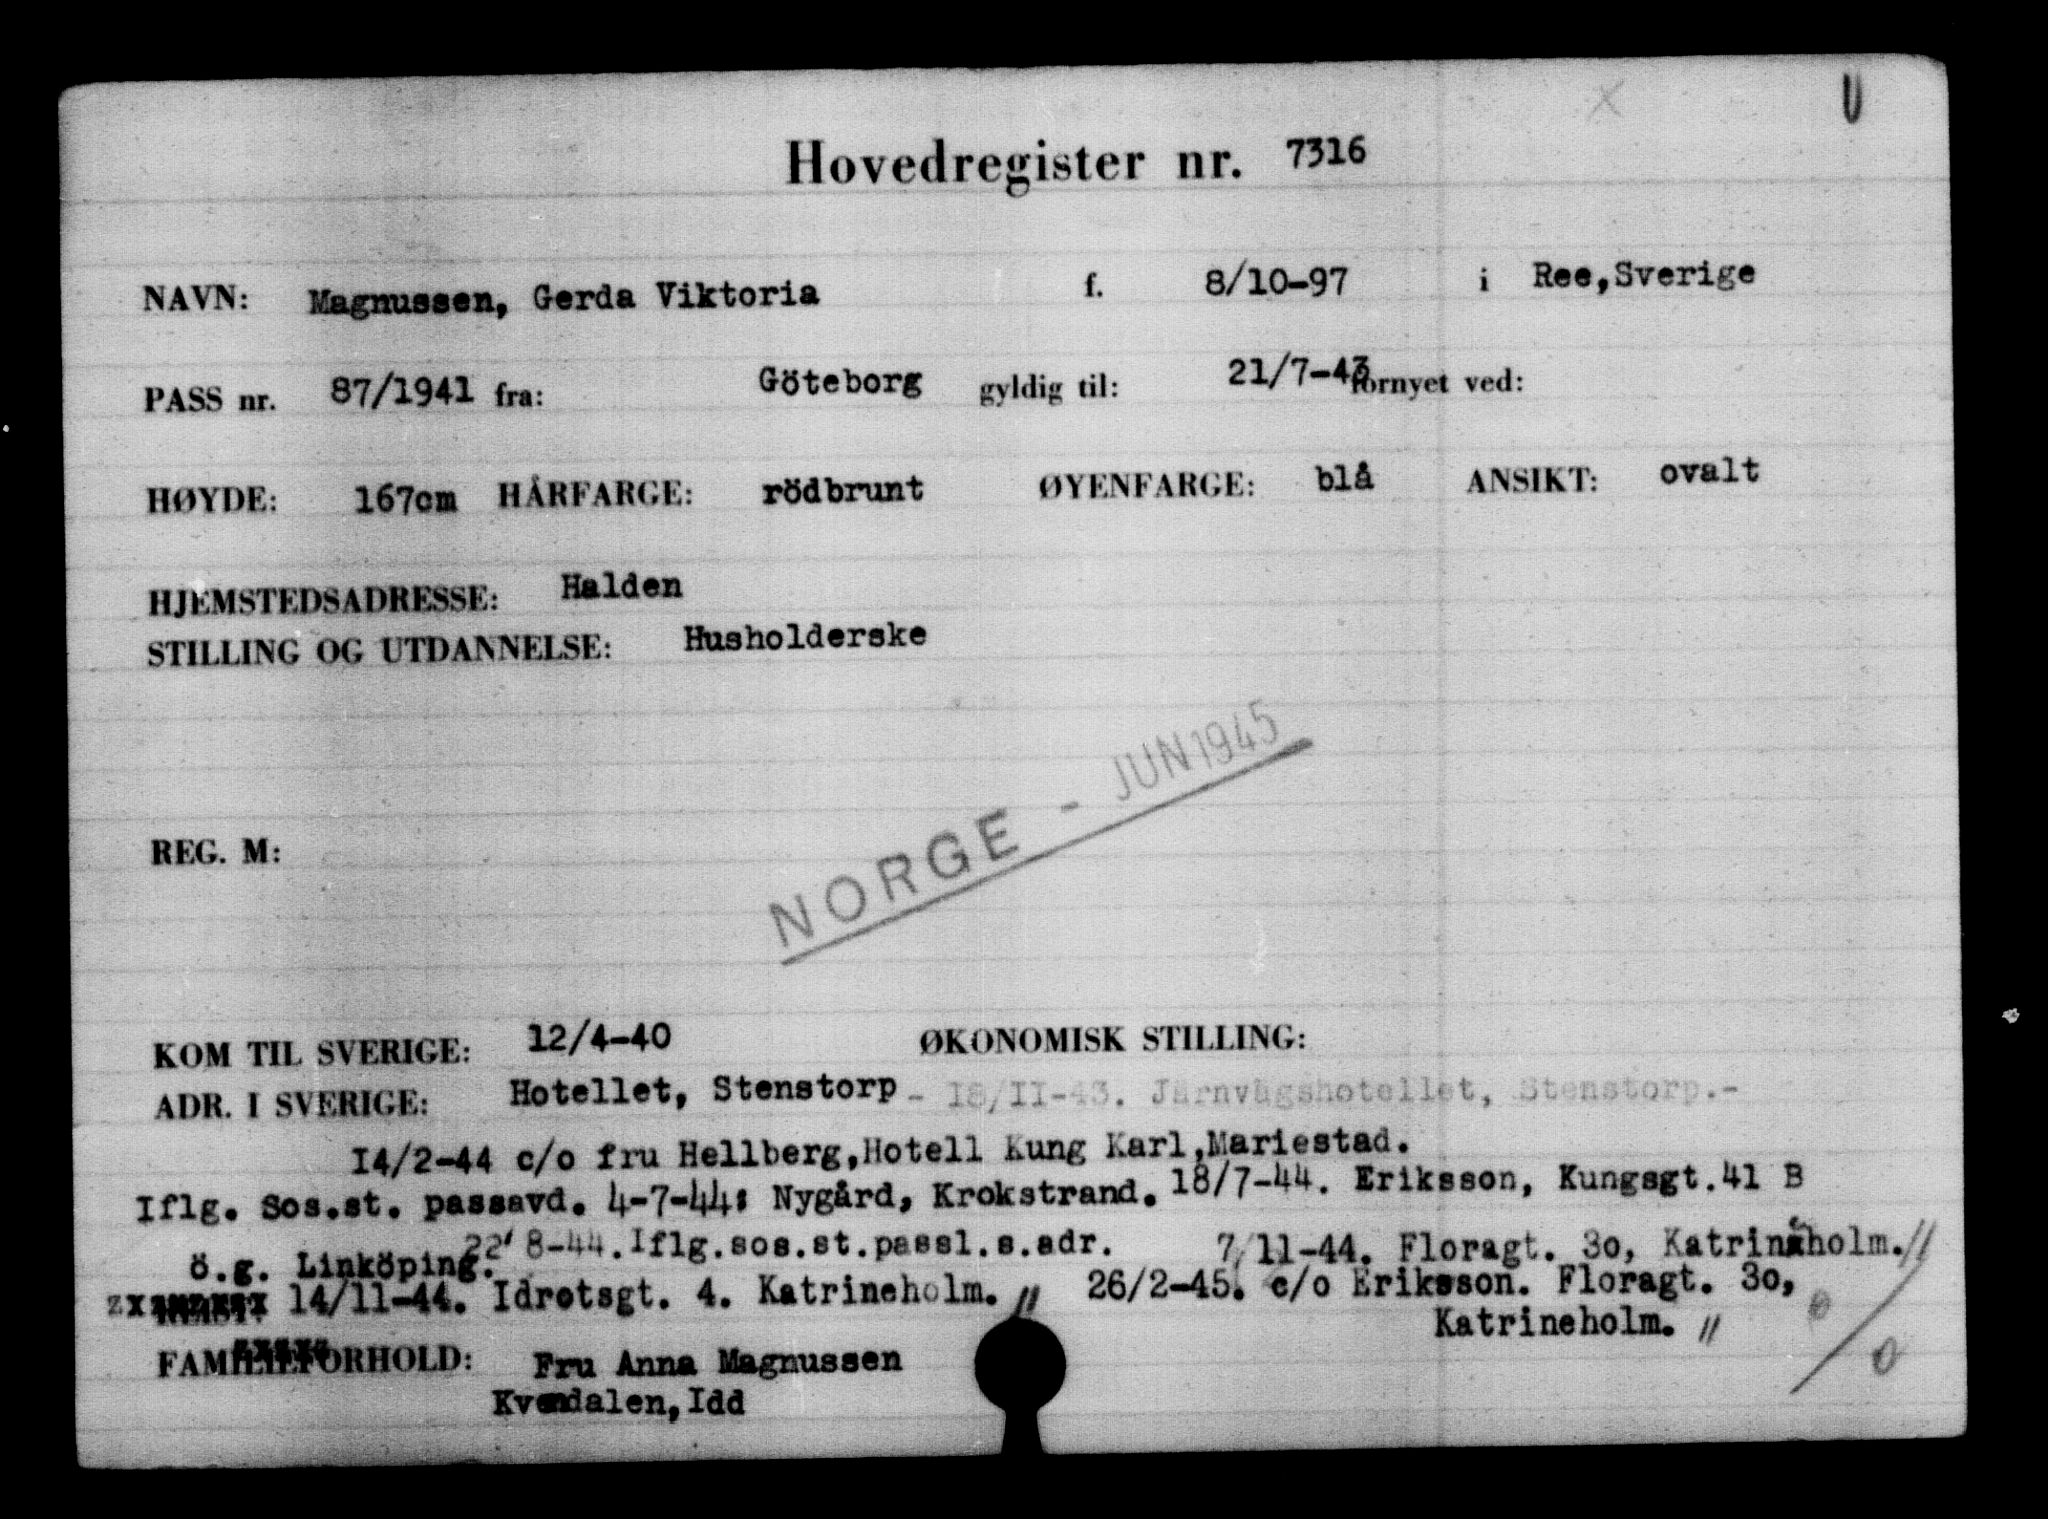 U
Hovedregister nr. 7316
NAVN: Magnussen, Gerda Viktoria f. 8/10-97 i Ree,Sverige
PASS nr. 87/1941 fra: Göteborg gyldig til: 21/7-43 fornyet ved:
HØYDE: 167cm HÅRFARGE: rödbrunt ØYENFARGE: blå ANSIKT: ovalt
HJEMSTEDSADRESSE: Halden
STILLING OG UTDANNELSE: Husholderske
NORGE - JUN 1945
REG. M:
KOM TIL SVERIGE: 12/4-40 ØKONOMISK STILLING:
ADR. I SVERIGE: Hotellet, Stenstorp - 18/II-43. Järnvägshotellet, Stenstorp.-
I4/2-44 c/o fru Hellberg,Hotell Kung Karl,Mariestad.
Iflg. Sos.st. passavd. 4-7-44: Nygård, Krokstrand. 18/7-44. Eriksson, Kungsgt.41 B
ö.g. Linköping. 22/8-44. Iflg.sos.st.passl.s.adr. 7/11-44. Floragt. 3o, Katrineholm.//
14/11-44. Idrotsgt. 4. Katrineholm. // 26/2-45. c/o Eriksson. Floragt. 3o,
Katrineholm. //
FAMILIEFORHOLD: Fru Anna Magnussen
Kvendalen,Idd